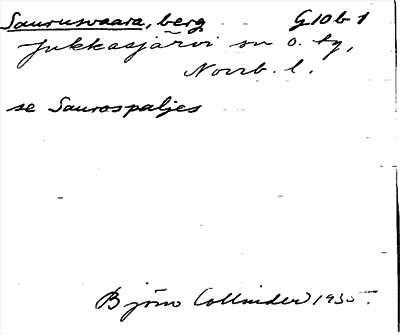 Saurusvaara, berg G10b1
Jukkasjärvi sn o. tg,
Norrb. l.
se Saurospaljes
Björn Collinder 1935.